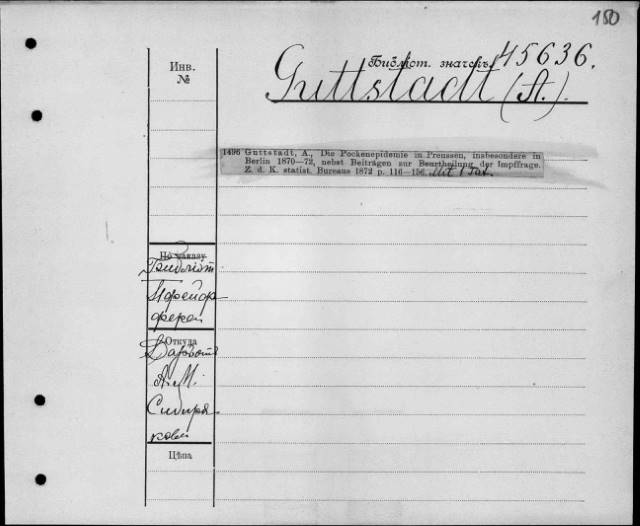 180
Библiот. значекъ 45636.
Guttstadt (A.).
Инв.
№
1496 Guttstadt, A., Die Pockenepidemie in Preussen, insbesondere in
Berlin 1870—72, nebst Beiträgen zur Beurtheilung der Impffrage.
Z. d. K. statist. Bureaus 1872 p. 116—156. Mit 1 Taf.
По заказу
Библiот
Пфейф
фера
Откуда
А. М.
Сибиря
кова
Цѣна